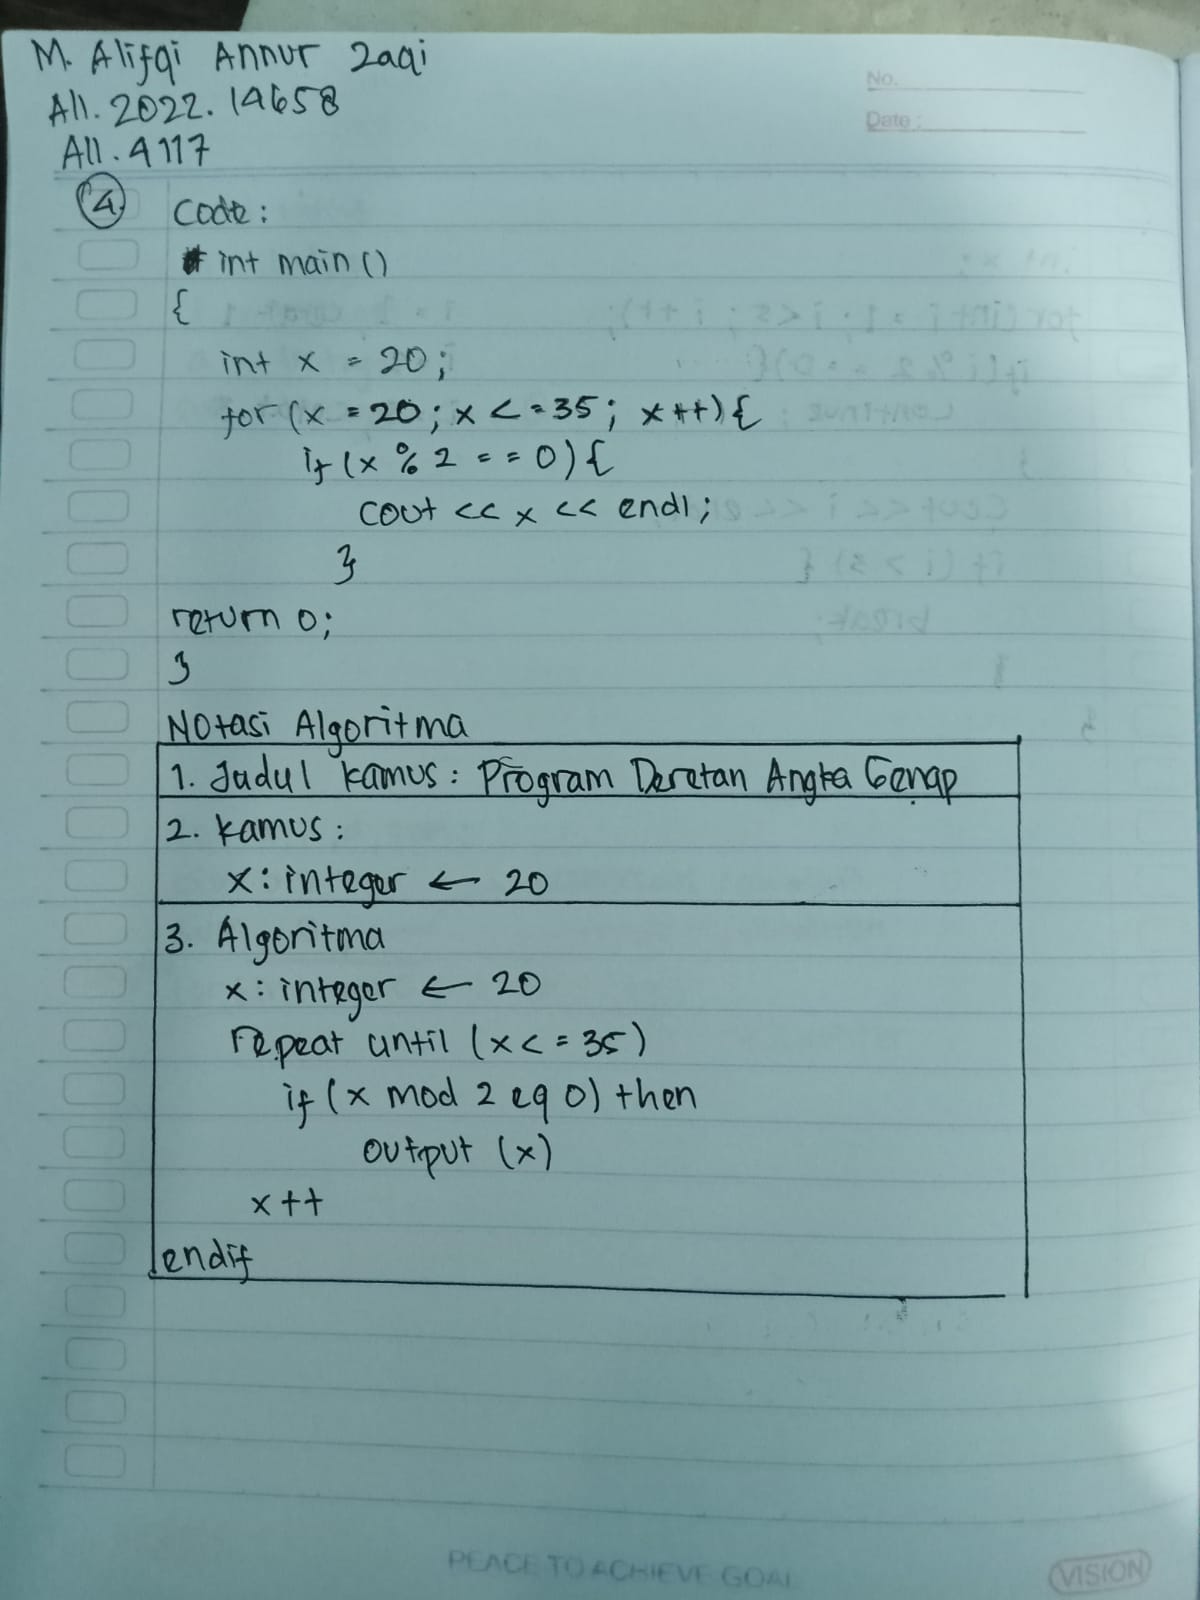 M. Alifqi Annur Zaqi
A11.2022.14658
A11.4117
No.
Date :
4. Code :
int main ()
{
int x = 20;
for (x = 20; x <= 35; x++) {
if (x % 2 == 0) {
cout << x << endl;
}
return 0;
}
Notasi Algoritma
1. Judul kamus : Program Deretan Angka Genap
2. kamus :
x : integer ← 20
3. Algoritma
x : integer ← 20
repeat until (x <= 35)
if (x mod 2 eq 0) then
output (x)
x ++
endif
PEACE TO ACHIEVE GOAL
VISION